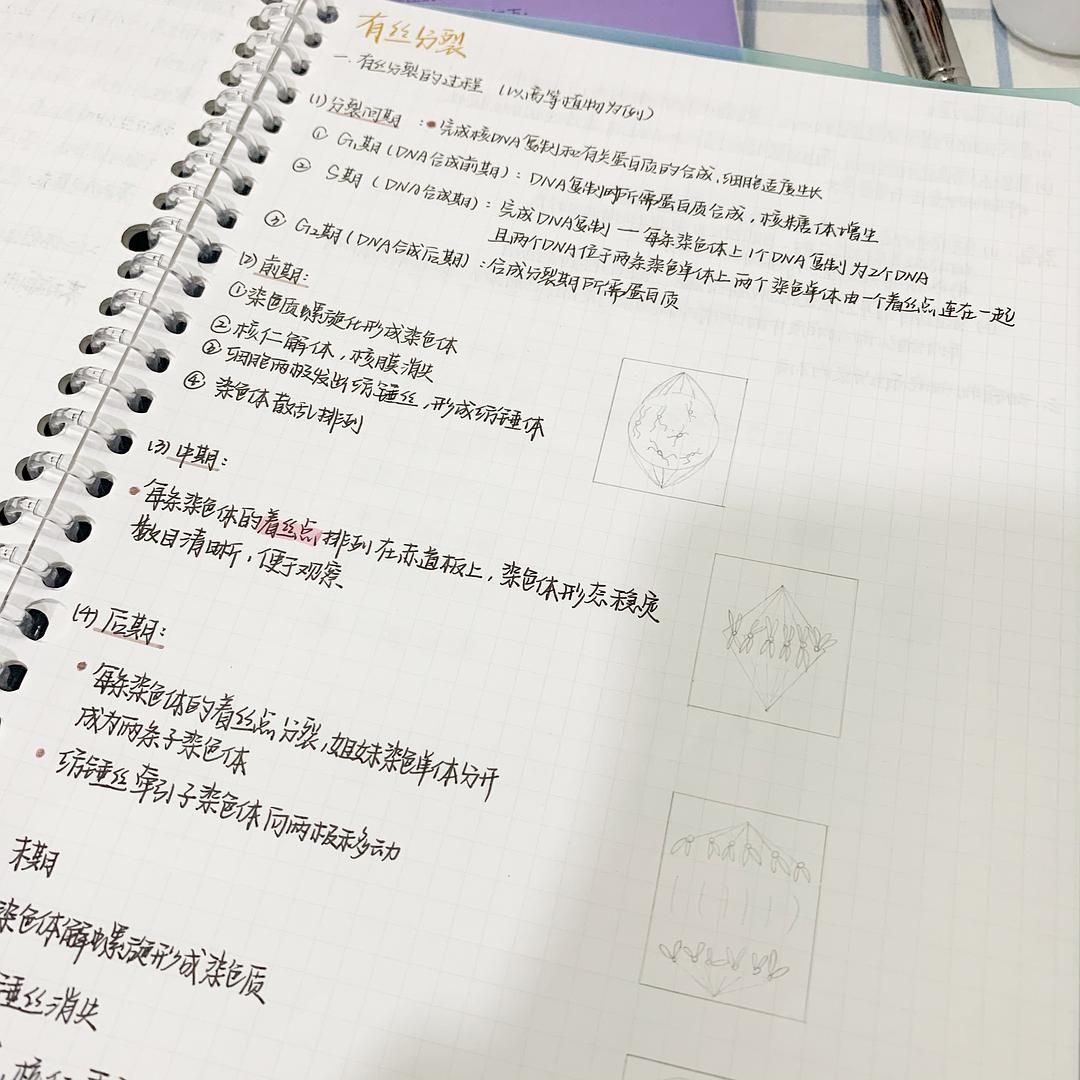 有丝分裂
一. 有丝分裂的过程 (以高等植物为例)
(1) 分裂间期 : 完成核DNA复制和有关蛋白质的合成,细胞适度生长
① G₁期(DNA合成前期): DNA复制所需蛋白质合成, 核糖体增生
② S期(DNA合成期): 完成DNA复制 — 每条染色体上1个DNA复制为2个DNA
且两个DNA位于两条染色单体上两个染色单体由一个着丝点连在一起
③ G₂期(DNA合成后期):合成分裂期所需蛋白质
(2) 前期:
①染色质螺旋化形成染色体
②核仁解体, 核膜消失
③细胞两极发出纺锤丝, 形成纺锤体
④ 染色体散乱排列
(3) 中期:
每条染色体的着丝点排列在赤道板上, 染色体形态稳定
数目清晰, 便于观察
(4) 后期:
每条染色体的着丝点分裂,姐妹染色单体分开
成为两条子染色体
纺锤丝牵引子染色体向两极移动
末期
染色体解螺旋形成染色质
锤丝消失
核仁